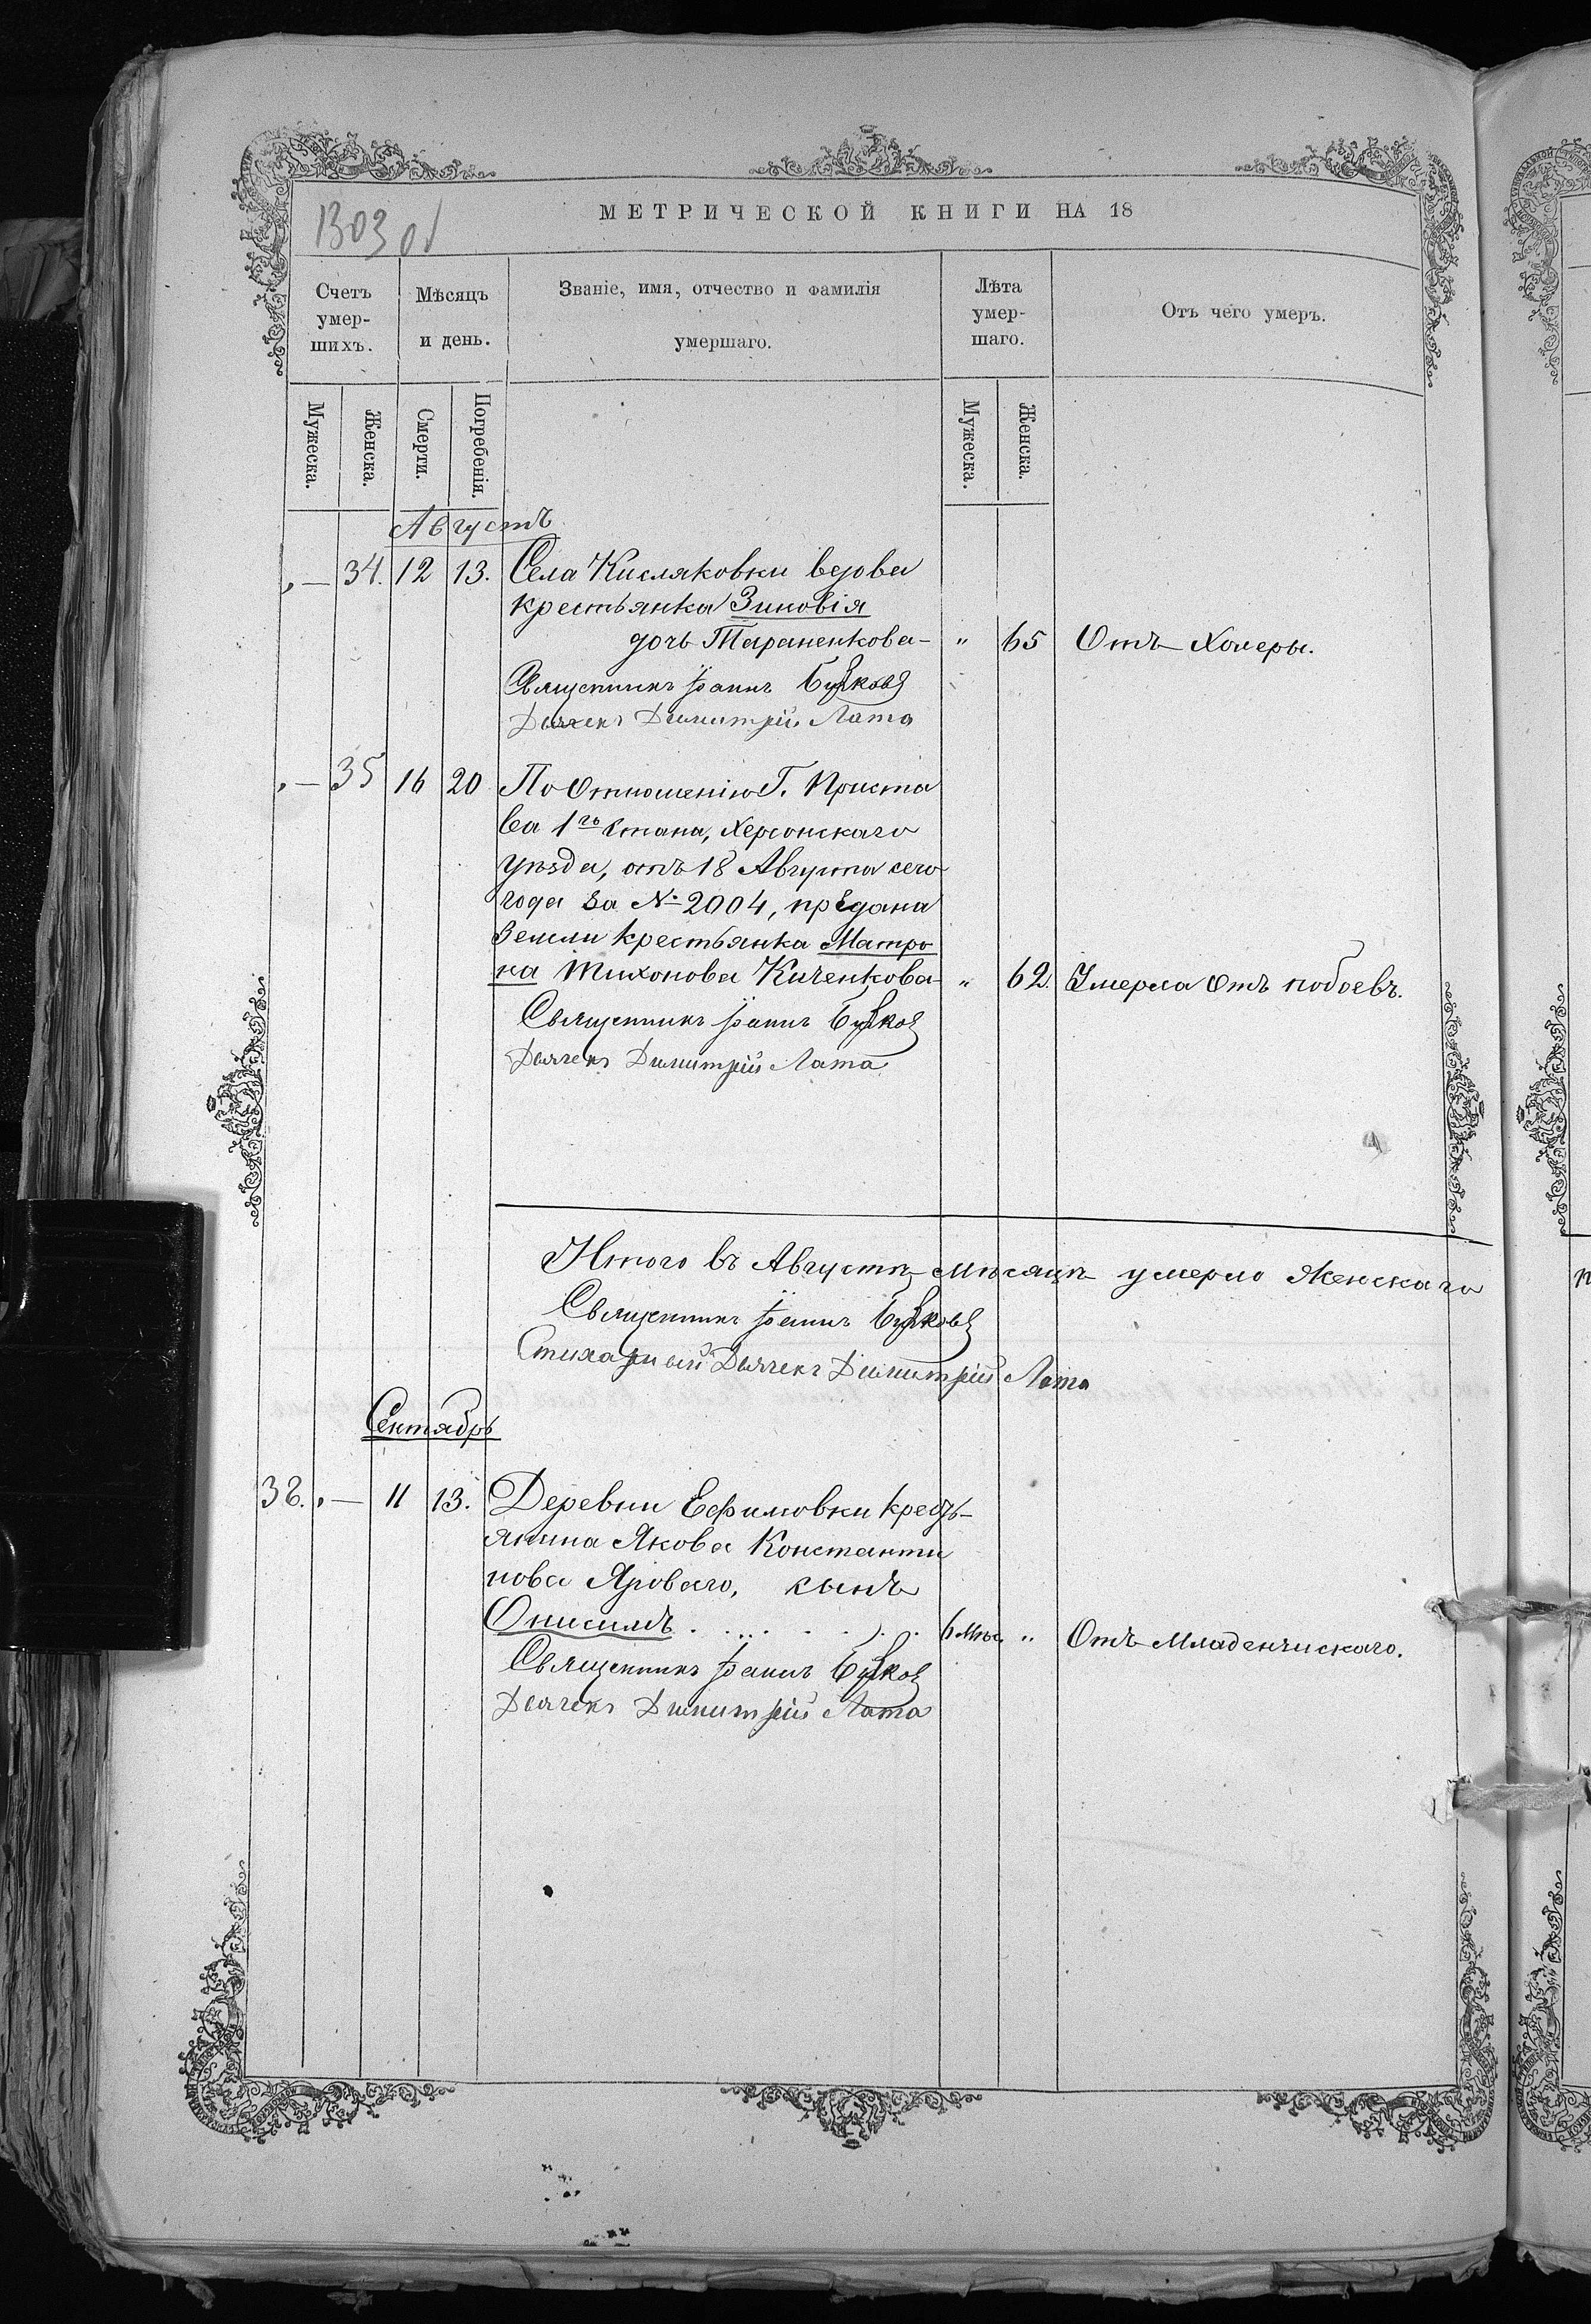 1303 об
МЕТРИЧЕСКОЙ КНИГИ НА 18
Счетъ умер-шихъ.
Мѣсяцъ и день.
Званіе, имя, отчество и фамилія умершаго.
Лѣта умер-шаго.
Отъ чего умеръ.
Мужеска.
Женска.
Смерти.
Погребенія.
Мужеска.
Женска.
Августъ
„ — 34. 12 13. Села Кисляковки вдова
крестьянка Зиновія
дочь Тараненкова - „ 65 Отъ Холеры.
Священникъ Іоаннъ
Дьячекъ Димитрій Лата
„ — 35 16 20 По Отношенію Г. Приста
ва 1го Стана, Херсонскаго
уѣзда, отъ 18 Августа сего
года за № 2004, предана
Земли крестьянка Матро
на Тихонова Киченкова - „ 62. Умерла отъ побоевъ.
Священникъ Іоаннъ
Дьячекъ Димитрій Лата
Итого въ Августѣ мѣсяцѣ умерло Женскаго
Священникъ Іоаннъ
Стихарный Дьячекъ Димитрій Лата
Сентябрь
38. „ — 11 13. Деревни Ефимовки крестъ-
янина Якова Константи
нова Яроваго, сынъ
Онисимъ . . . . . . . 6 мѣс. „ Отъ Младенчискаго.
Священникъ Іоаннъ
Дьячекъ Димитрій Лата